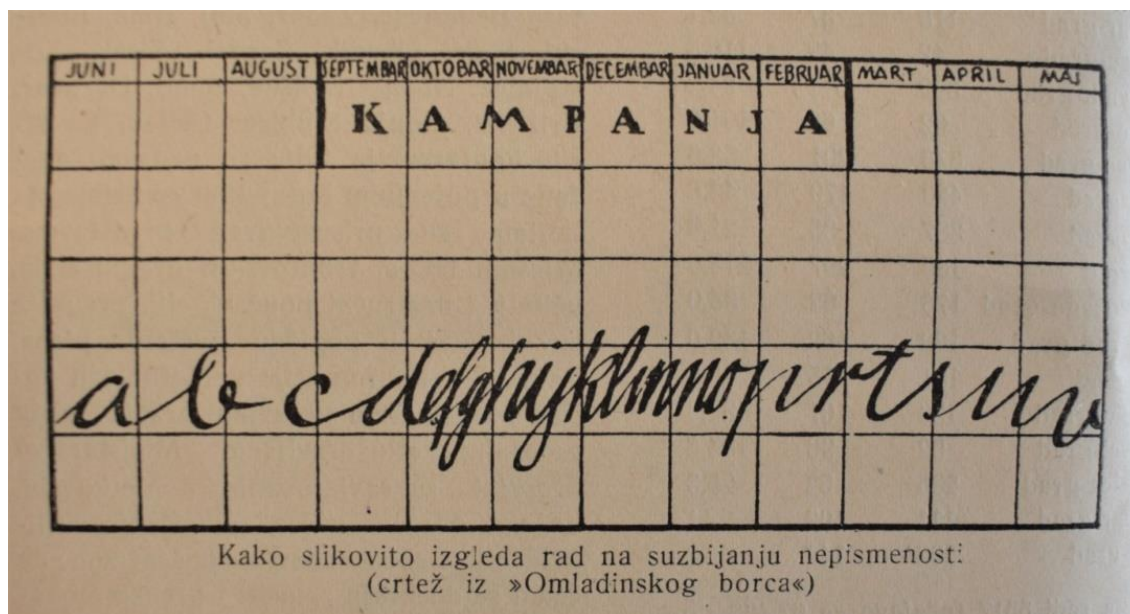 JUNI JULI AUGUST SEPTEMBAR OKTOBAR NOVEMBAR DECEMBAR JANUAR FEBRUAR MART APRIL MAJ
KAMPANJA
a b c d e f g h i j k l m n o p r t s u v
Kako slikovito izgleda rad na suzbijanju nepismenosti
(crtež iz »Omladinskog borca«)